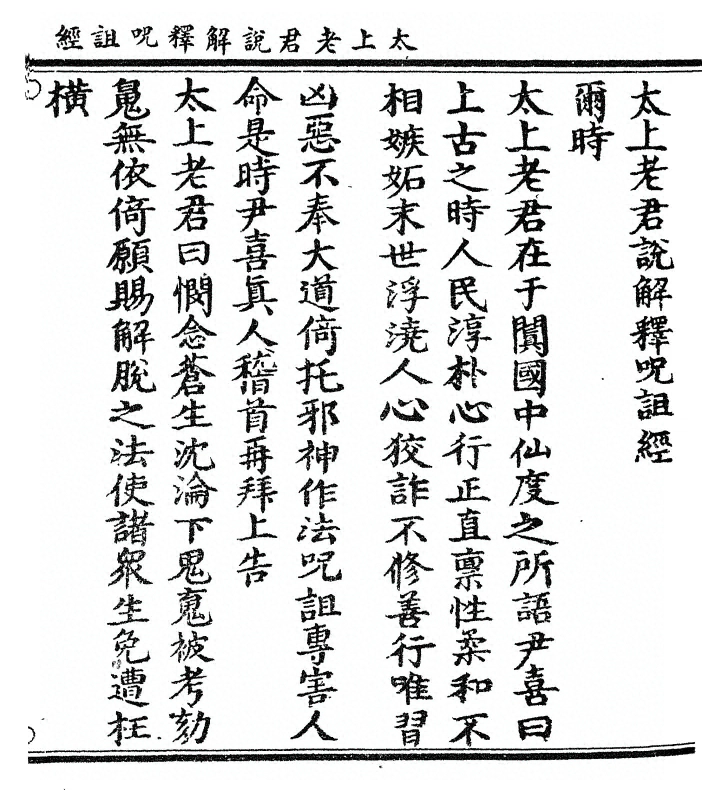 太上老君說解釋呪詛經
太上老君說解釋呪詛經
爾時
太上老君在于闐國中仙度之所語尹喜曰
上古之時人民淳朴心行正直禀性柔和不
相嫉妬末世浮澆人心狡詐不修善行唯習
凶惡不奉大道倚托邪神作法呪詛專害人
命是時尹喜眞人稽首再拜上告
太上老君曰憫念蒼生沈淪下鬼䰟被考劾
䰟無依倚願賜解脫之法使諸衆生免遭枉
橫